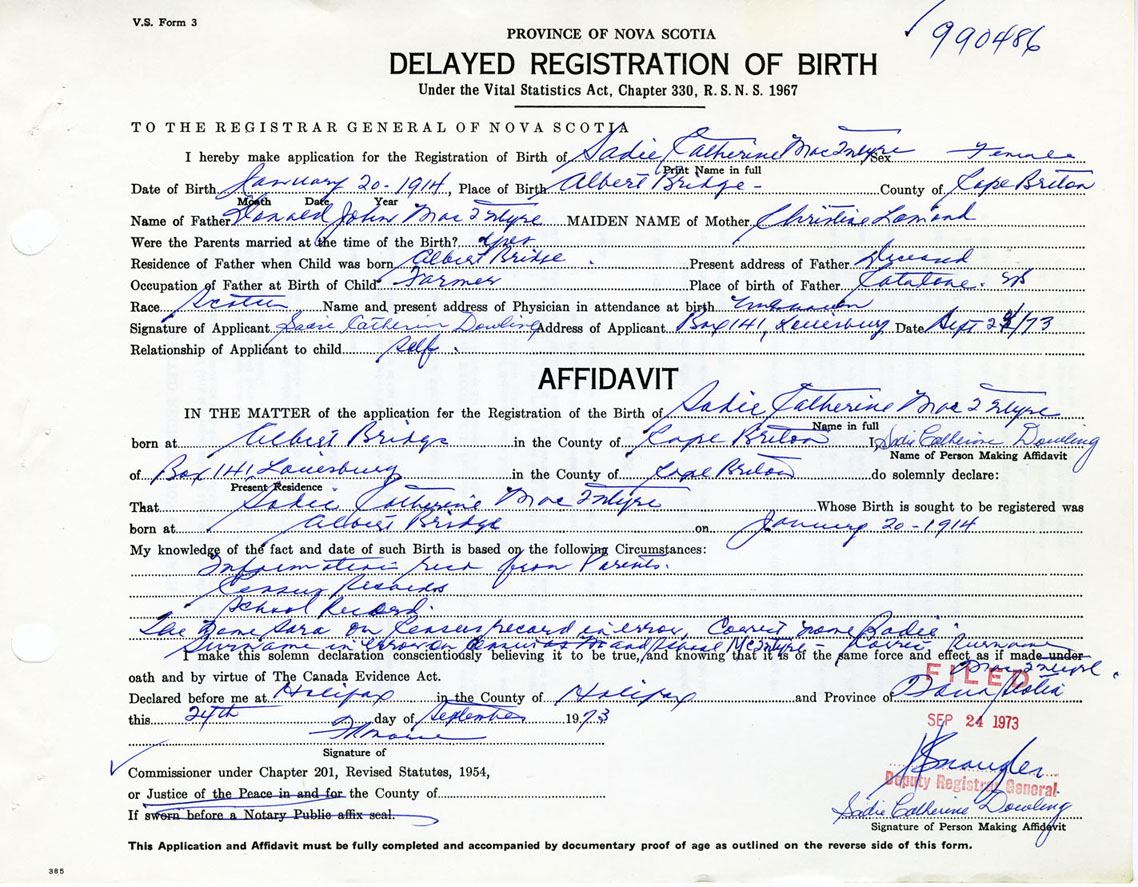 V.S. Form 3
990486
PROVINCE OF NOVA SCOTIA
DELAYED REGISTRATION OF BIRTH
Under the Vital Statistics Act, Chapter 330, R. S. N. S. 1967
TO THE REGISTRAR GENERAL OF NOVA SCOTIA
I hereby make application for the Registration of Birth of Sadie Catherine MacIntyre Sex Female
Print Name in full
Date of Birth January 20-1914, Place of Birth Albert Bridge - County of Cape Briton
Month Date Year
Name of Father Donald John MacIntyre MAIDEN NAME of Mother Christine Lamond
Were the Parents married at the time of the Birth? yes
Residence of Father when Child was born Albert Bridge . Present address of Father
Occupation of Father at Birth of Child Farmer Place of birth of Father Catalone. NS
Race Scotch Name and present address of Physician in attendance at birth unknown
Signature of Applicant Sadie Catherine Dowling Address of Applicant Box 141, Louisburg Date Sept /73
Relationship of Applicant to child self .
AFFIDAVIT
IN THE MATTER of the application for the Registration of the Birth of Sadie Catherine MacIntyre
Name in full
born at Albert Bridge in the County of Cape Briton I, Sadie Catherine Dowling
Name of Person Making Affidavit
of Box 141 Louisburg in the County of Cape Briton do solemnly declare:
Present Residence
That Sadie Catherine MacIntyre Whose Birth is sought to be registered was
born at Albert Bridge on January 20-1914
My knowledge of the fact and date of such Birth is based on the following Circumstances:
Information recd from Parents.
Census Records
School Record.
The name Sara on Census record in error, Correct name "Sadie"
Surname in error on Census as and School McIntyre - Correct Surname
MacIntyre.
I make this solemn declaration conscientiously believing it to be true, and knowing that it is of the same force and effect as if made under
oath and by virtue of The Canada Evidence Act.
FILED
Declared before me at Halifax in the County of Halifax and Province of Nova Scotia
this 24th day of September 1973
SEP 24 1973
Signature of
Commissioner under Chapter 201, Revised Statutes, 1954,
Deputy Registrar General
or Justice of the Peace in and for the County of
Sadie Catherine Dowling
If sworn before a Notary Public affix seal.
Signature of Person Making Affidavit
This Application and Affidavit must be fully completed and accompanied by documentary proof of age as outlined on the reverse side of this form.
385